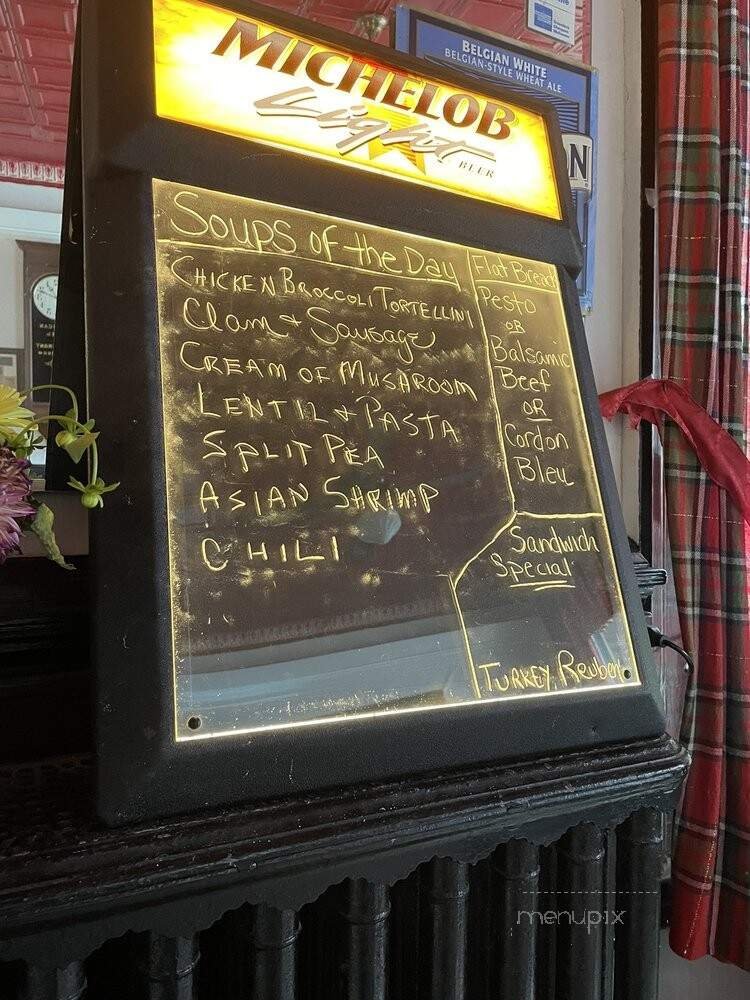 MICHELOB
Light
BEER
BELGIAN WHITE
BELGIAN-STYLE WHEAT ALE
Soups of the Day
CHICKEN BROCCOLI TORTELLINI
Clam & Sausage
CREAM OF MUSHROOM
LENTIL & PASTA
SPLIT PEA
ASIAN SHRIMP
CHILI
Flat Bread
Pesto
OR
Balsamic
Beef
OR
Cordon
Bleu
Sandwich
Special
TURKEY Reuben
menupix